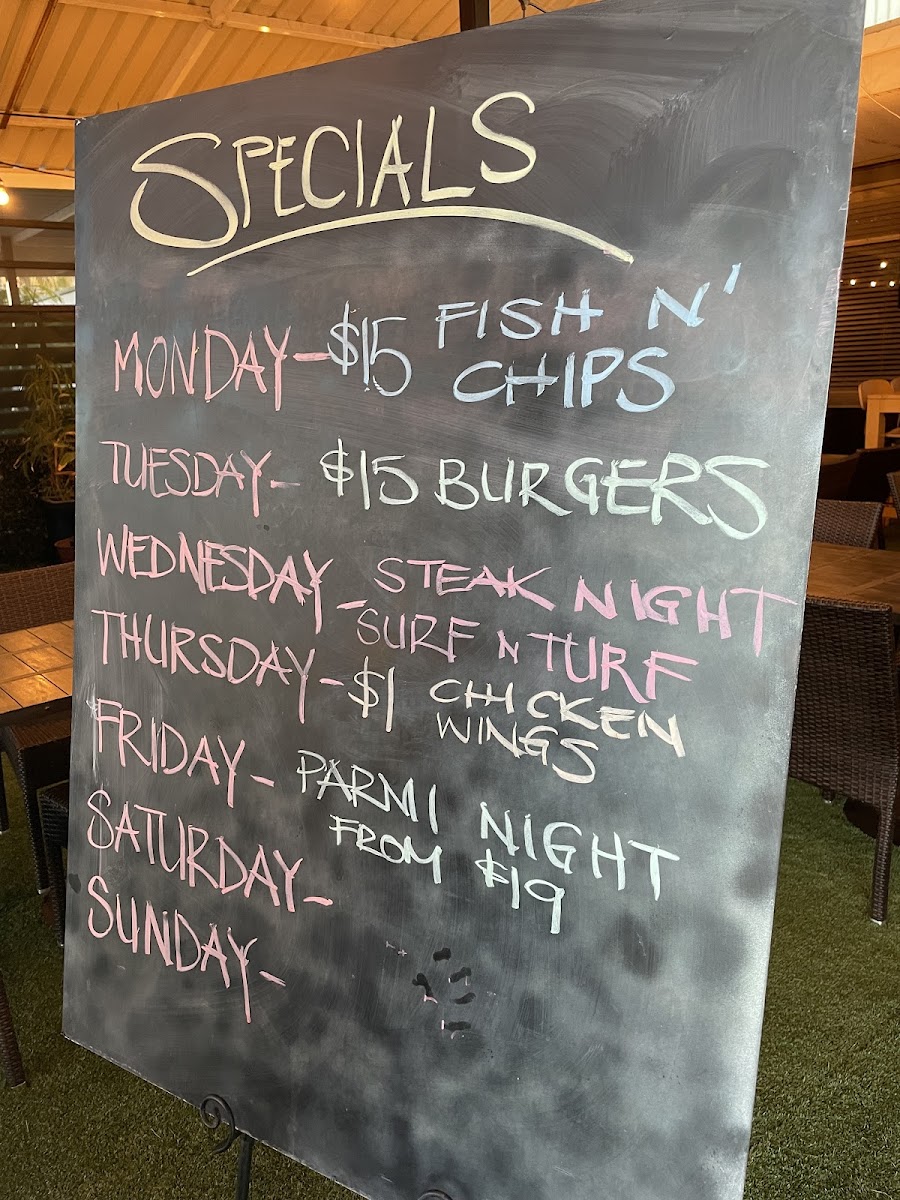 SPECIALS
MONDAY - $15 FISH N'
CHIPS
TUESDAY - $15 BURGERS
WEDNESDAY - STEAK NIGHT
SURF N TURF
THURSDAY - $1 CHICKEN
WINGS
FRIDAY - PARMI NIGHT
FROM $19
SATURDAY -
SUNDAY -